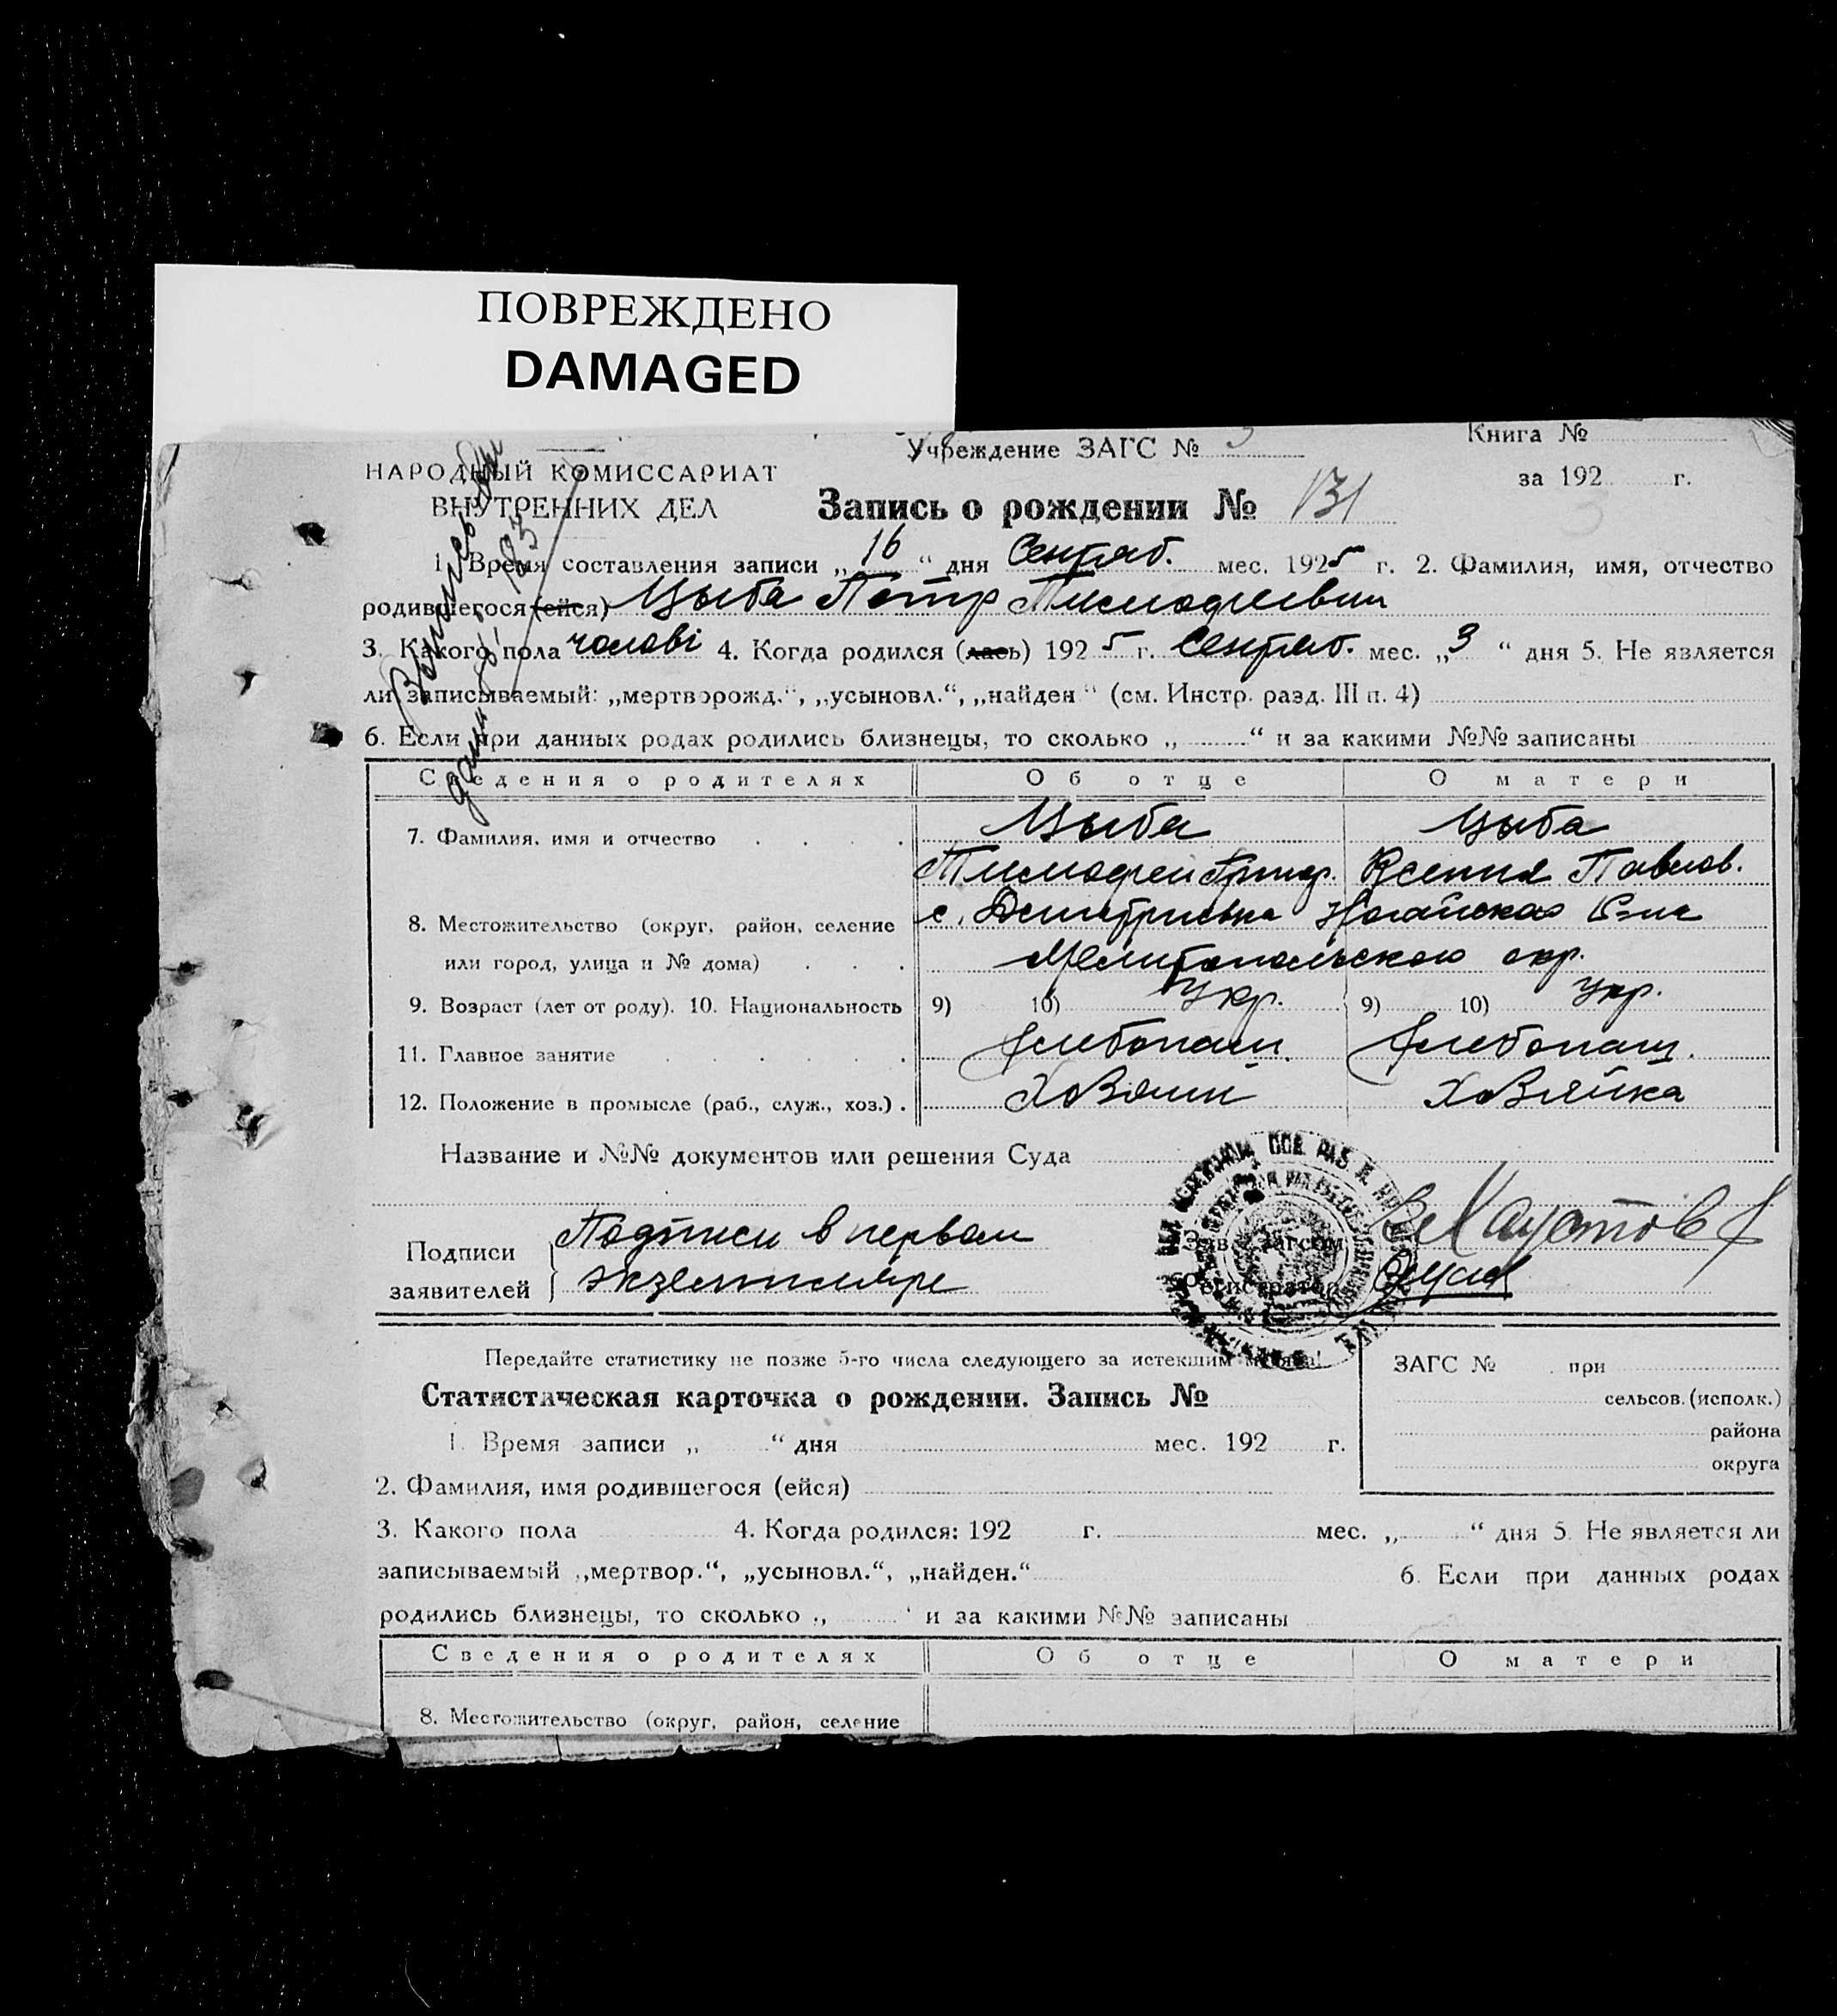 ПОВРЕЖДЕНО
DAMAGED
Учреждение ЗАГС № 3
Книга №
НАРОДНЫЙ КОМИССАРИАТ
за 192 г.
ВНУТРЕННИХ ДЕЛ
Запись о рождении № 131
1. Время составления записи „ 16 “ дня Сентяб. мес. 1925 г. 2. Фамилия, имя, отчество
родившегося (ейся) Цыба Петр Тимофеевич
3. Какого пола чолові 4. Когда родился (лась) 1925 г. Сентяб. мес. „3 “ дня 5. Не является
ли записываемый: „мертворожд.“, „усыновл.“, „найден “ (см. Инстр. разд. III п. 4)
6. Если при данных родах родились близнецы, то сколько „ “ и за какими №№ записаны
Сведения о родителях Об отце О матери
7. Фамилия, имя и отчество Цыба Цыба
Тимофей Григ. Ксения Павлов.
8. Местожительство (округ, район, селение с. Дмитриевка Ногайского Р-на
или город, улица и № дома) Мелитопольского окр.
9. Возраст (лет от роду). 10. Национальность 9) 10) Укр. 9) 10) Укр.
11. Главное занятие Хлебопаш. Хлебопаш.
12. Положение в промысле (раб., служ., хоз.) . Хозяин Хозяйка
Название и №№ документов или решения Суда
Подписи заявителей
Подписи в первом
экземпляре
Зав. Загсом Хаустов
Регистратор
Передайте статистику не позже 5-го числа следующего за истекшим месяца!
Статистическая карточка о рождении. Запись №
ЗАГС № при
сельсов. (исполк.)
района
округа
1. Время записи „ “ дня мес. 192 г.
2. Фамилия, имя родившегося (ейся)
3. Какого пола 4. Когда родился: 192 г. мес. „ “ дня 5. Не является ли
записываемый „мертвор.“, „усыновл.“, „найден.“ 6. Если при данных родах
родились близнецы, то сколько „ “ и за какими №№ записаны
Сведения о родителях Об отце О матери
8. Местожительство (округ, район, селение